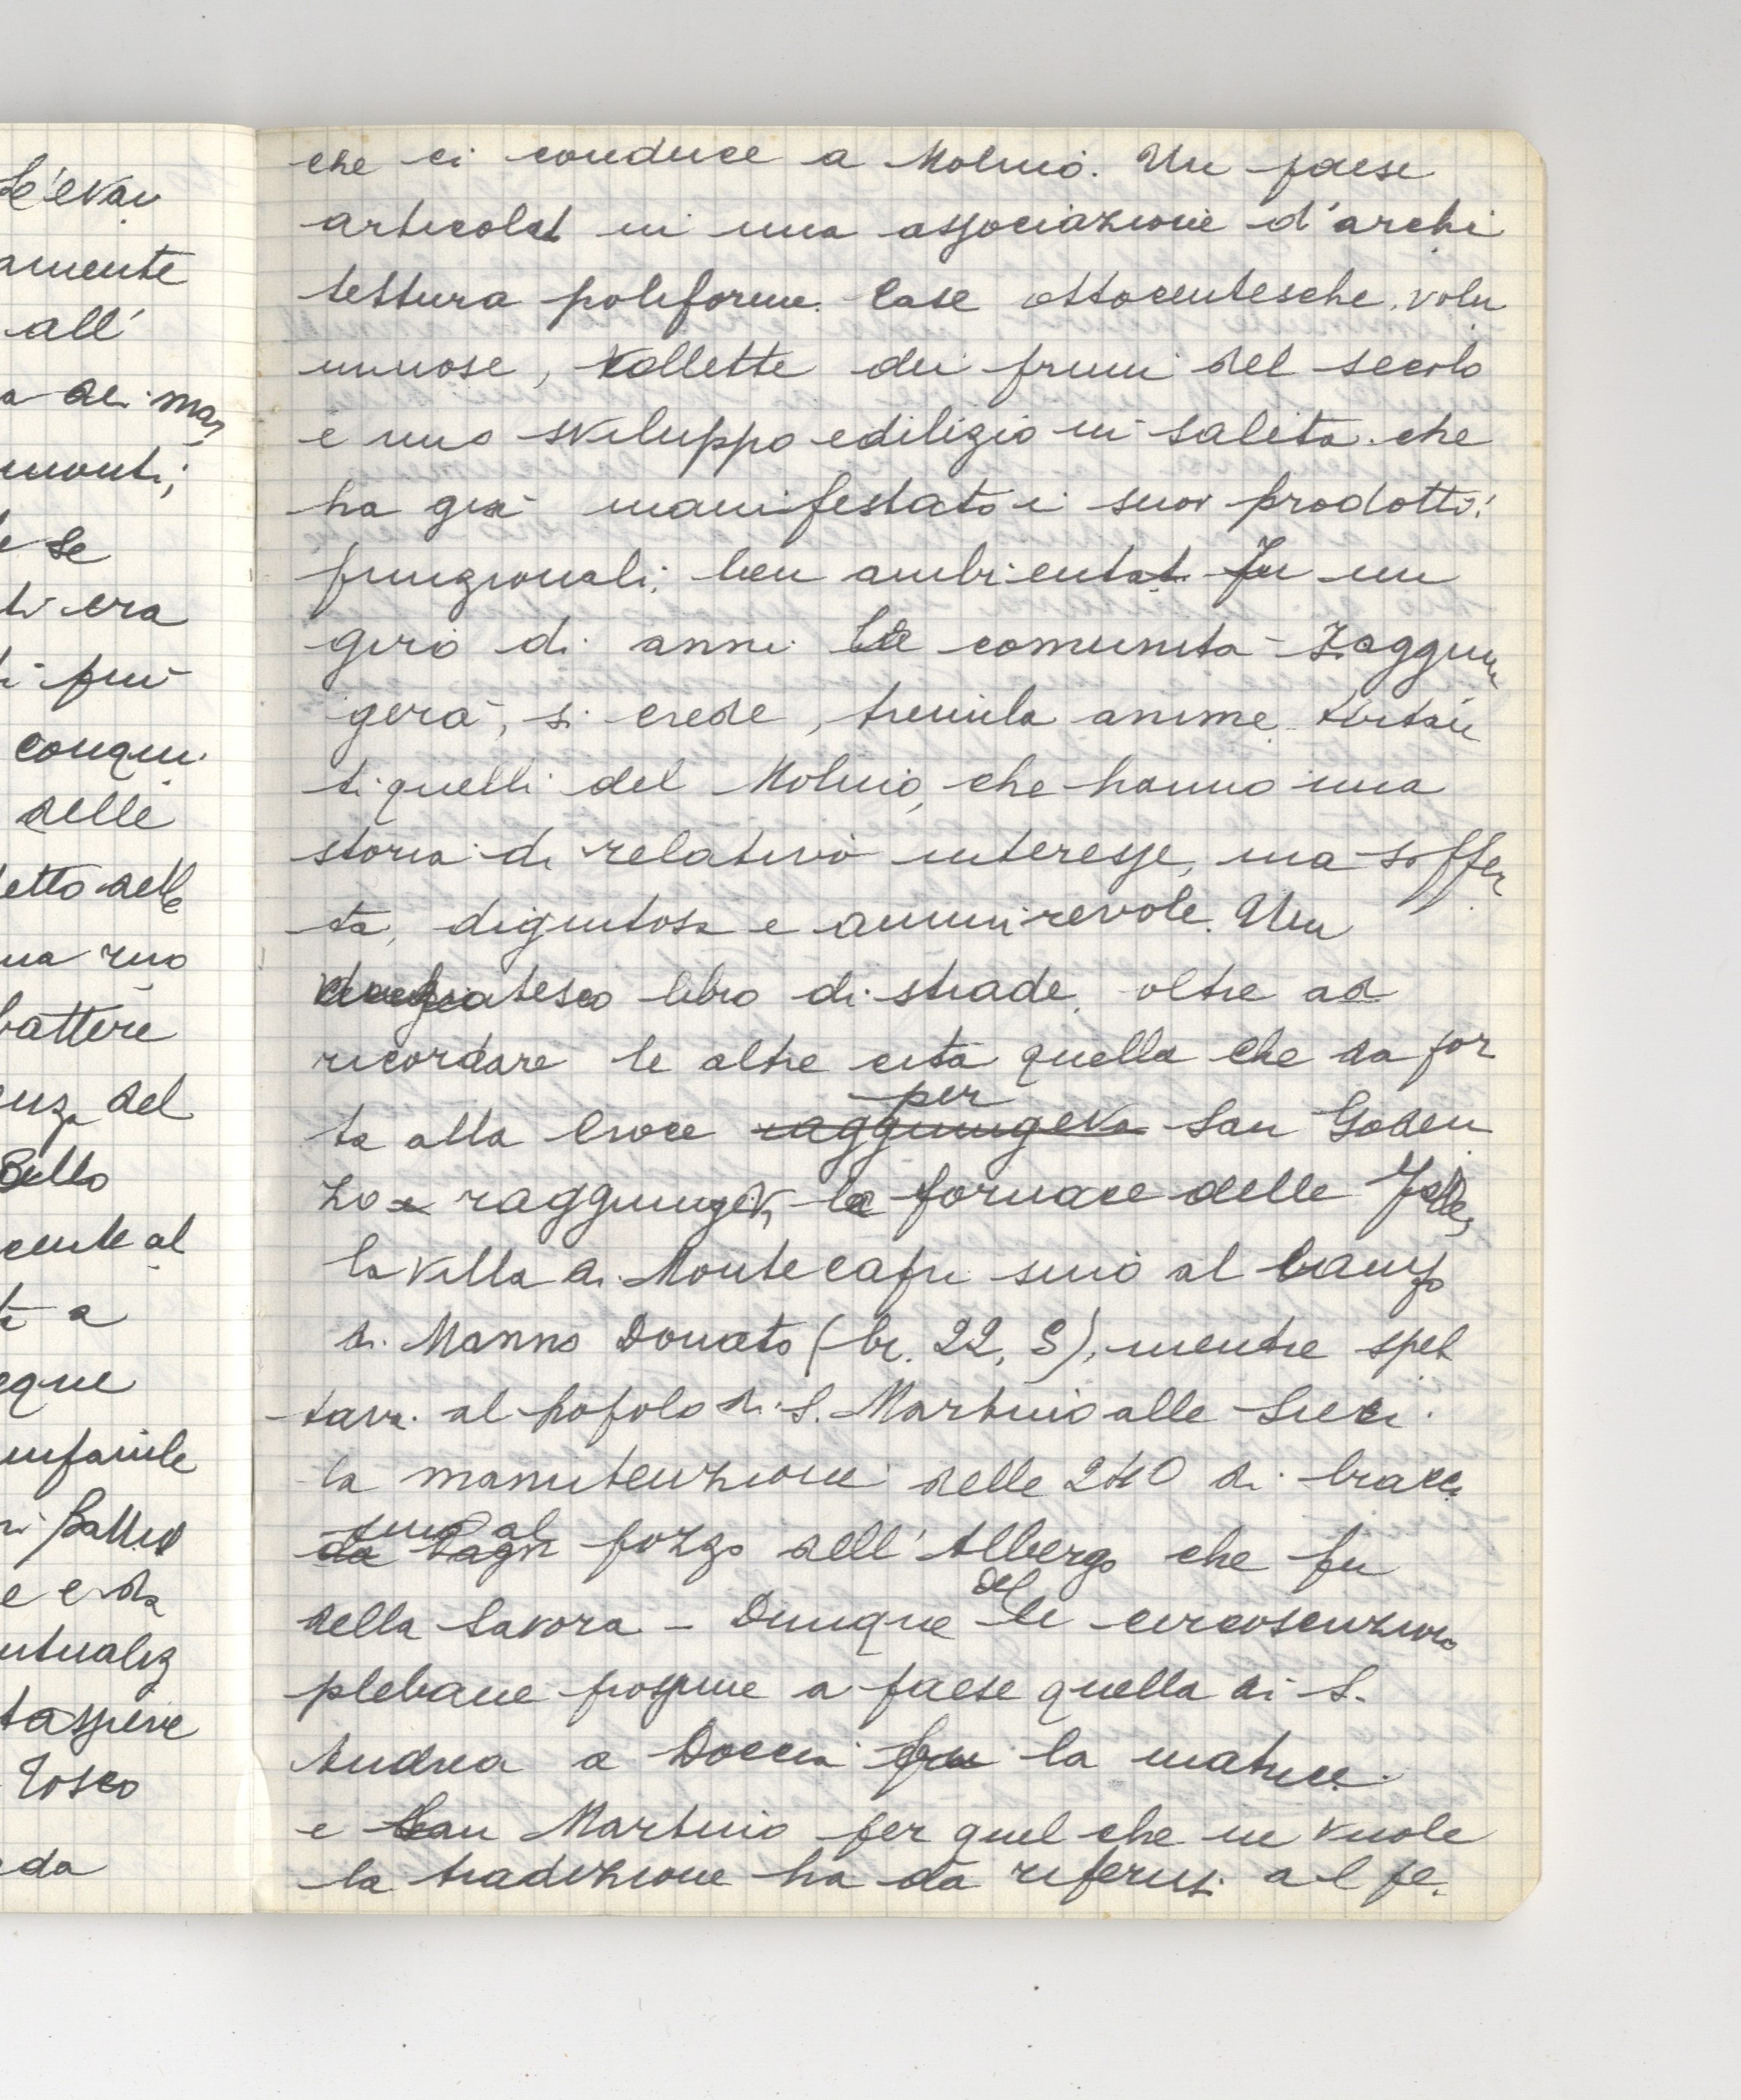 Le'evan
amente
all'
a dei man
monti;
e se
ti era
di più
conqui
delle
etto delle
una suo
battere
enza del
Bello
cente al
ti a
eque
infantile
e e da
ntualiz
taspieve
Tosco
da
che ci conduce a Molino. Un paese
articolat in una associazione d'archi
tettura poliforme. Case ottocentesche, volu
minose, vallette dei primi del secolo
e uno sviluppo edilizio in salita che
ha già manifestato i suoi prodotti:
funzionali, ben ambientat. In un
giro di anni la comunità raggiun
gerà, si crede, tremila anime. tutta
ti quelli del Molino, che hanno una
storia di relativo interesse, ma soffer
ta, dignitosa e ammirevole. Un
libro di strade, oltre ad
ricordare le altre cita quella che da por
per
ta alla Croce raggiungeva San Goden
zo e raggiungeva la fornace delle Falle,
la villa di Montecapri sino al campo
di Manno Donato (br. 22, S), mentre spet
tava al popolo di S. Martino alle Sieci
la manutenzione delle 240 di bracci
sino al
da pozzo dell'Albergo che fu
del
della Lavora - Dunque le circoscrizioni
plebane prossime a paese quella di S.
Andrea a Doccia fu la matrice
e San Martino per quel che ne vuole
la tradizione ha da riferirsi al pe